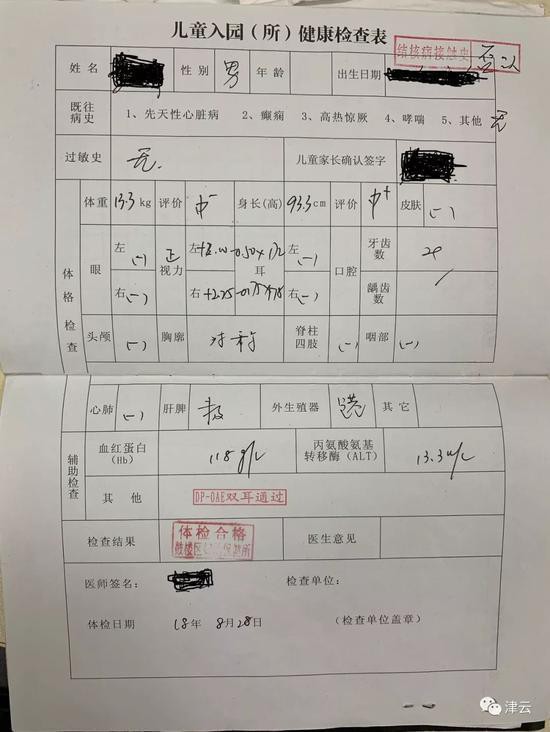 儿童入园（所）健康检查表
结核病接触史 否认
姓名 性别 男 年龄 出生日期
既往病史 1、先天性心脏病 2、癫痫 3、高热惊厥 4、哮喘 5、其他 无
过敏史 无. 儿童家长确认签字
体重 13.3kg 评价 中- 身长(高) 93.3cm 评价 中+ 皮肤 (-)
体格检查
眼 左 (-) 视力 左 耳 左 (-) 口腔 牙齿数
右 (-) 右 右 (-) 龋齿数
头颅 (-) 胸廓 对称 脊柱四肢 (-) 咽部 (-)
心肺 (-) 肝脾 外生殖器 其它
辅助检查
血红蛋白(Hb) 118g/L 丙氨酸氨基转移酶(ALT) 13.3u/L
其他 DP-OAE双耳通过
检查结果 体检合格 医生意见
医师签名： 检查单位：
体检日期 18年 8月28日 (检查单位盖章)
津云